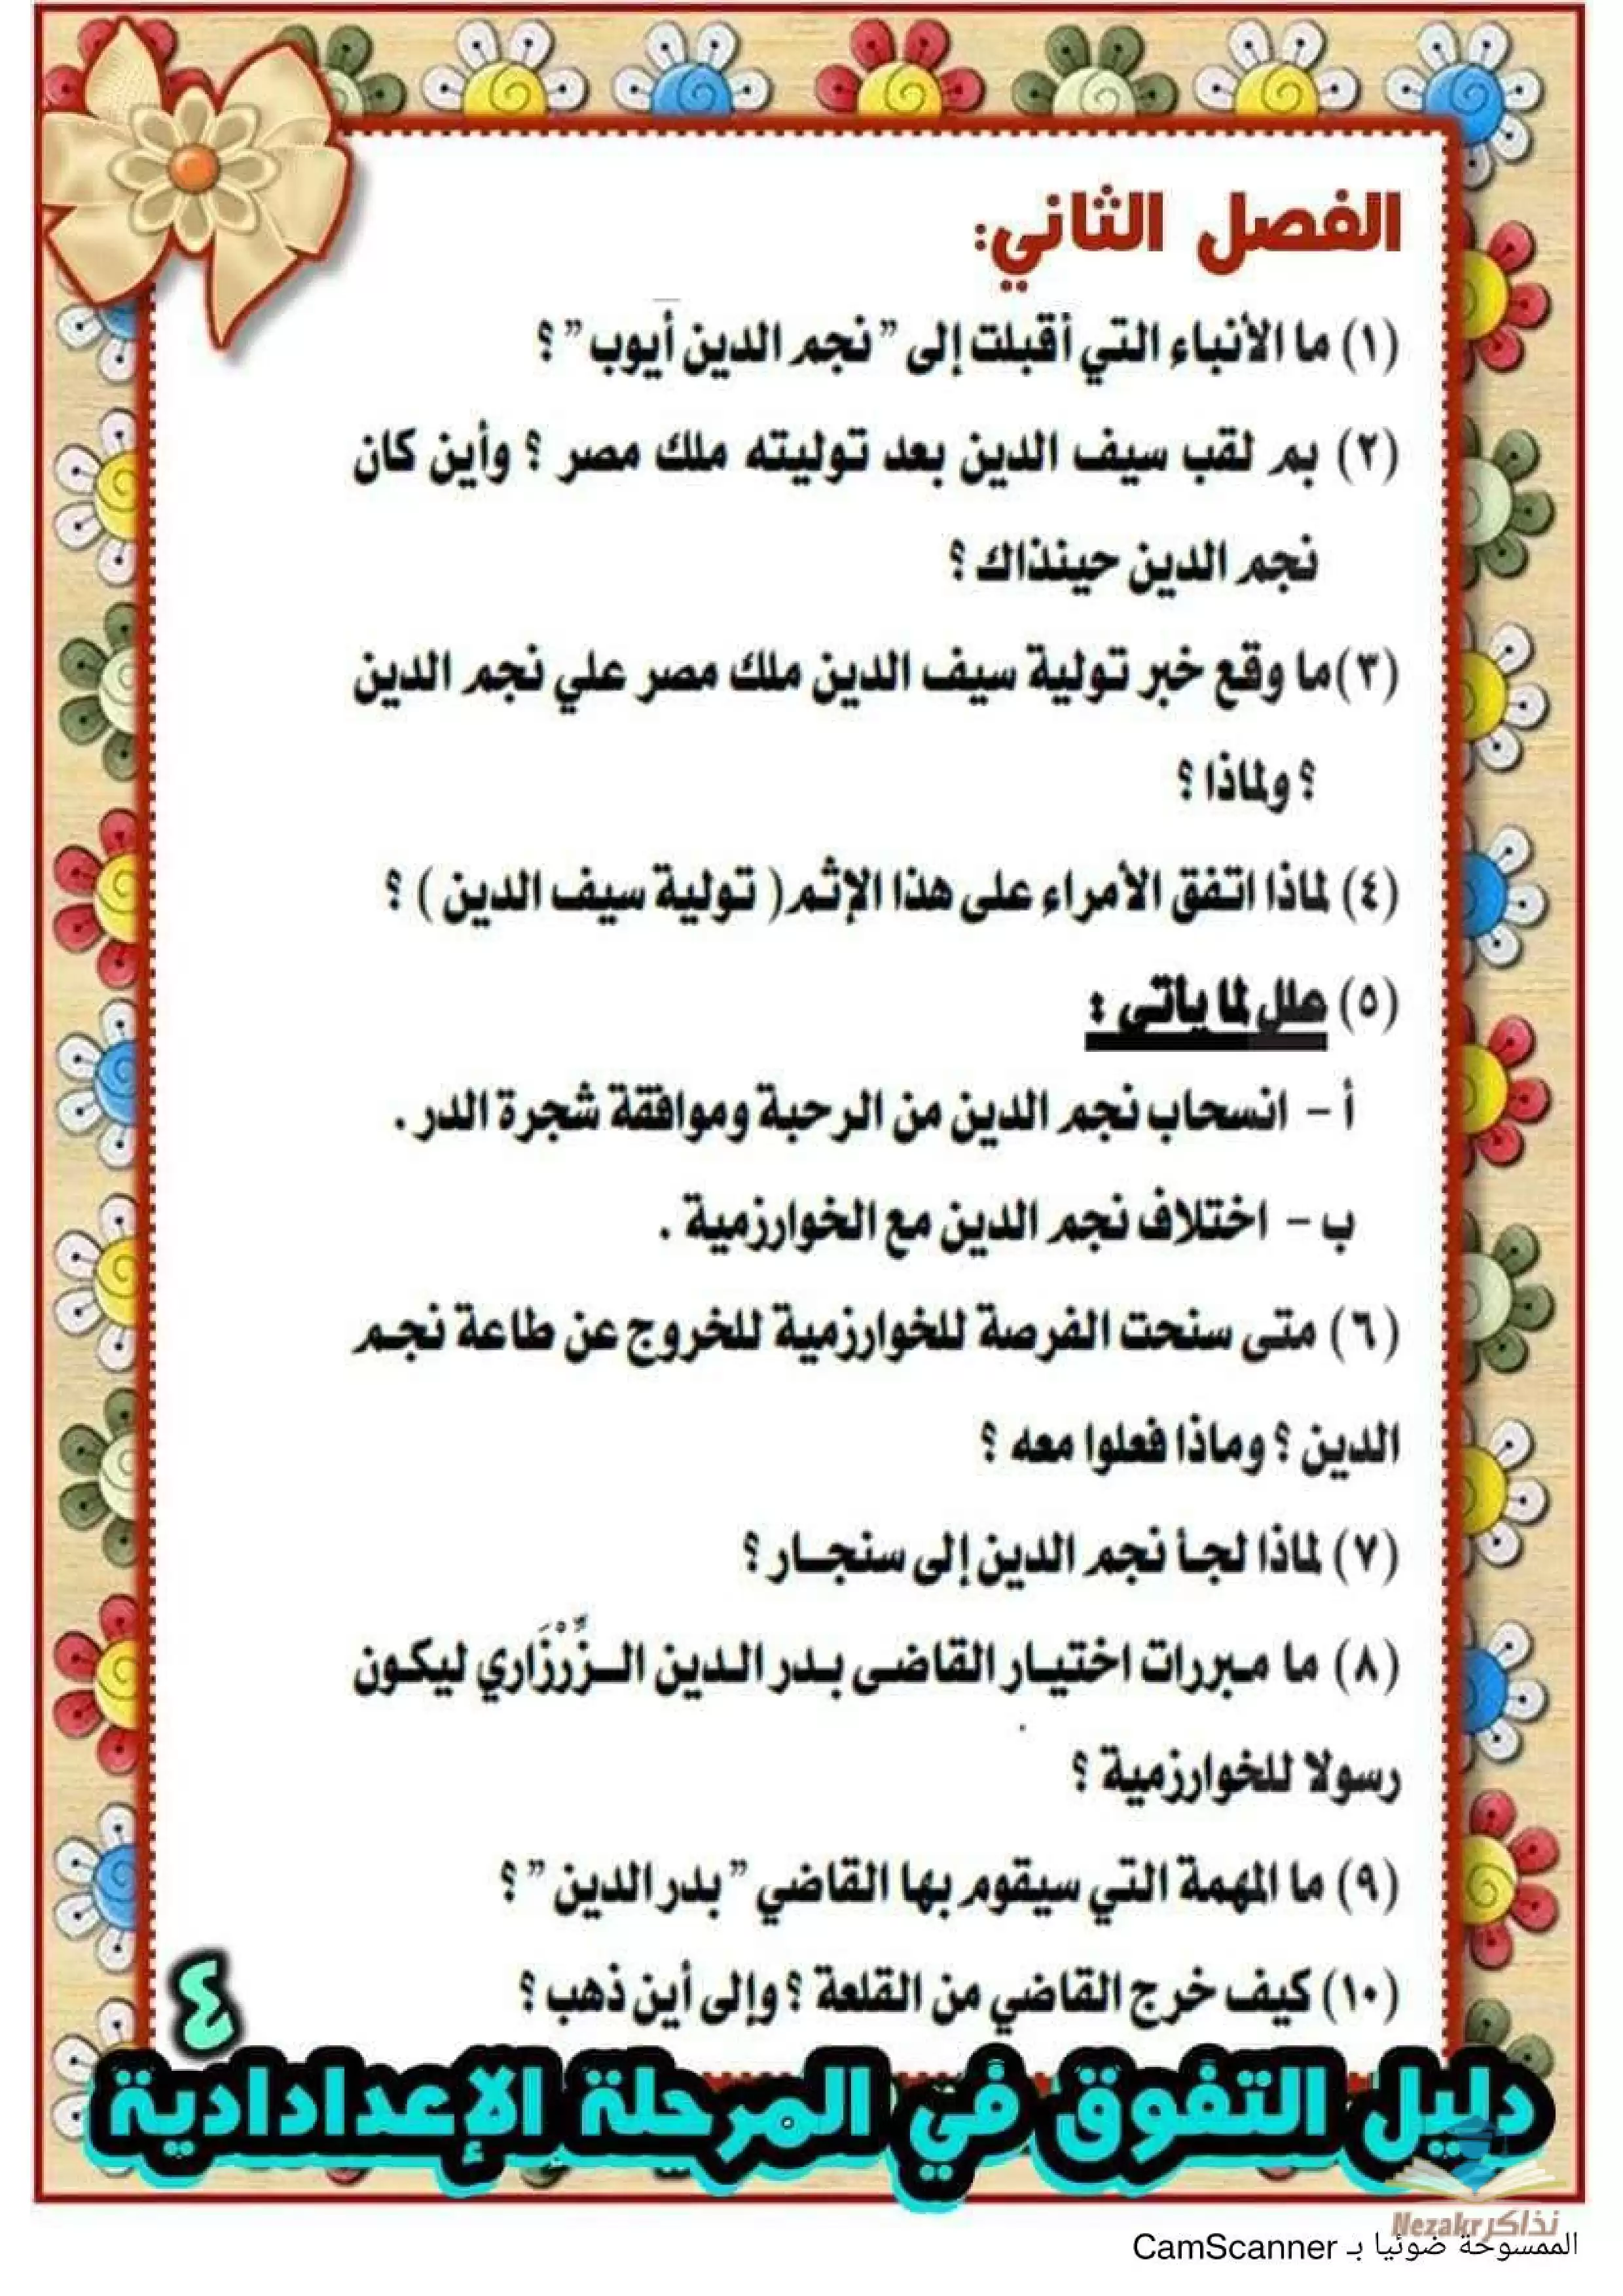 الفصل الثاني:
(١) ما الأنباء التي أقبلت إلى " نجم الدين أيوب " ؟
(٢) بم لقب سيف الدين بعد توليته ملك مصر ؟ وأين كان
نجم الدين حينذاك ؟
(٣)ما وقع خبر تولية سيف الدين ملك مصر علي نجم الدين
؟ ولماذا ؟
(٤) لماذا اتفق الأمراء على هذا الإثم ( تولية سيف الدين ) ؟
(٥) علل لما يأتى :
أ - انسحاب نجم الدين من الرحبة وموافقة شجرة الدر .
ب - اختلاف نجم الدين مع الخوارزمية .
(٦) متى سنحت الفرصة للخوارزمية للخروج عن طاعة نجم
الدين ؟ وماذا فعلوا معه ؟
(٧) لماذا لجأ نجم الدين إلى سنجــار ؟
(٨) ما مبررات اختيار القاضى بدر الدين الــزِّرْزَاري ليكون
رسولا للخوارزمية ؟
(٩) ما المهمة التي سيقوم بها القاضي " بدر الدين " ؟
(١٠) كيف خرج القاضي من القلعة ؟ وإلى أين ذهب ؟
٤
دليل التفوق في المرحلة الإعدادادية
Nezakr نذاكر
الممسوحة ضوئيا بـ CamScanner